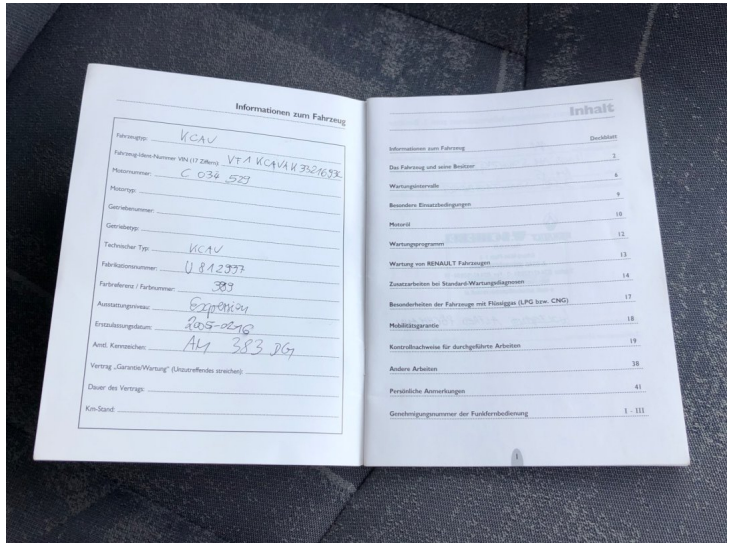 Informationen zum Fahrzeug
Fahrzeugtyp: KCAV
Fahrzeug-Ident-Nummer VIN (17 Ziffern)
Motornummer: C 034 529
Motortyp:
Getriebenummer:
Getriebetyp:
Technischer Typ: KCAV
Fabrikationsnummer: U 812997
Farbreferenz / Farbnummer: 389
Ausstattungsniveau:
Erstzulassungsdatum: 2005-0216
Amtl. Kennzeichen: AM 383 DG
Vertrag „Garantie/Wartung" (Unzutreffendes streichen):
Dauer des Vertrags:
Km-Stand:
Inhalt
Informationen zum Fahrzeug Deckblatt
Das Fahrzeug und seine Besitzer 2
Wartungsintervalle 6
Besondere Einsatzbedingungen 9
Motoröl 10
Wartungsprogramm 12
Wartung von RENAULT Fahrzeugen 13
Zusatzarbeiten bei Standard-Wartungsdiagnosen 16
Besonderheiten der Fahrzeuge mit Flüssiggas (LPG bzw. CNG) 17
Mobilitätsgarantie 18
Kontrollnachweise für durchgeführte Arbeiten 19
Andere Arbeiten 38
Persönliche Anmerkungen 41
Genehmigungsnummer der Funkfernbedienung I - III
1